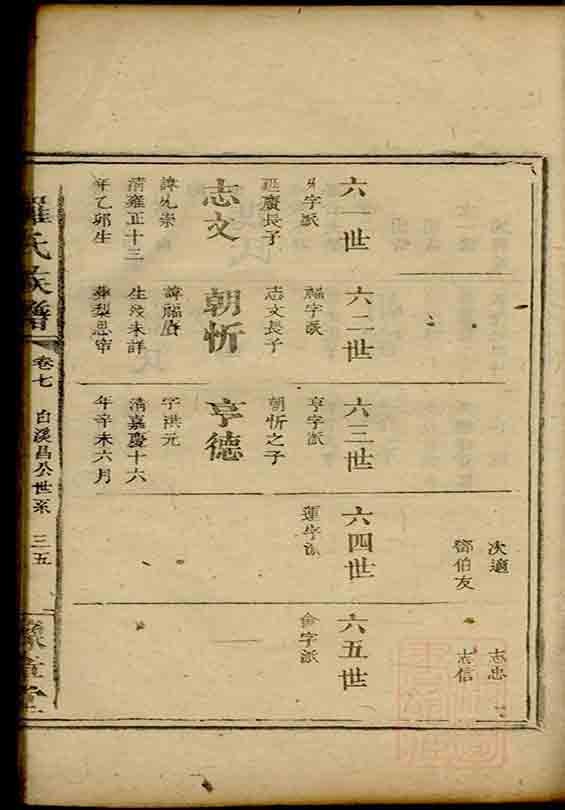 次適
鄧伯友
志忠
志信
六一世
字派
廷廣長子
志文
諱允崇
清雍正十三
年乙卯生
六二世
福字派
志文長子
朝忻
諱福廣
生歿未詳
葬梨思帘
六三世
亨字派
朝忻之子
亨德
字洪元
清嘉慶十六
年辛未六月
六四世
運字派
六五世
會字派
羅氏族譜
卷七
白溪昌公世系
三五
豫章堂